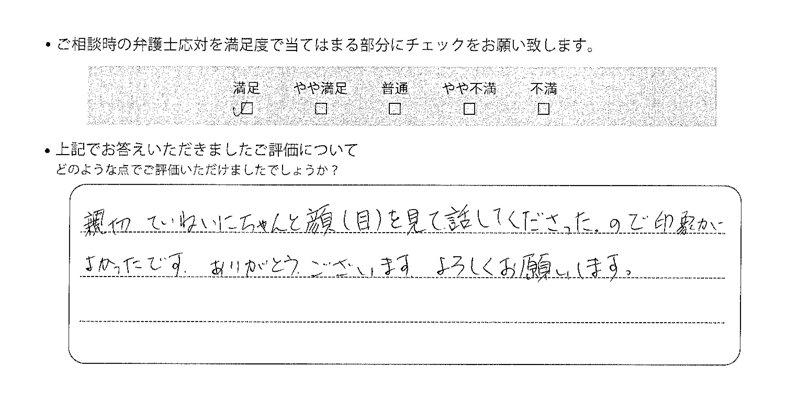 • ご相談時の弁護士応対を満足度で当てはまる部分にチェックをお願い致します。
満足 やや満足 普通 やや不満 不満
• 上記でお答えいただきましたご評価について
どのような点でご評価いただけましたでしょうか？
親切 ていねいにちゃんと顔(目)を見て話してくださった。ので印象が
よかったです。ありがとうございます。よろしくお願いします。